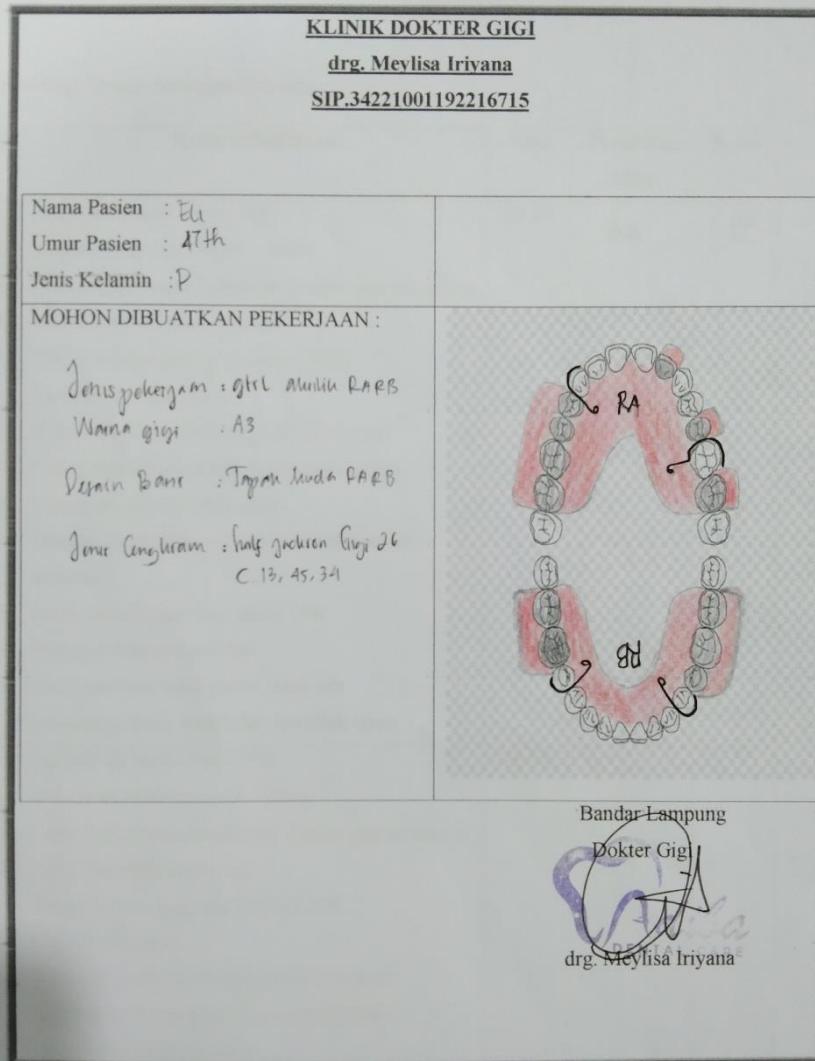 KLINIK DOKTER GIGI
drg. Meylisa Iriyana
SIP.34221001192216715
Nama Pasien : Eli
Umur Pasien : 47th
Jenis Kelamin : P
MOHON DIBUATKAN PEKERJAAN :
Jenis pekerjaan : gtsl akrilik RARB
Warna gigi : A3
Desain Basis : Tapak kuda RARB
Jenis Cengkram : half Jackson Gigi 26
C. 13, 45, 34
RA
RB
Bandar Lampung
Dokter Gigi
DENTAL CARE
drg. Meylisa Iriyana